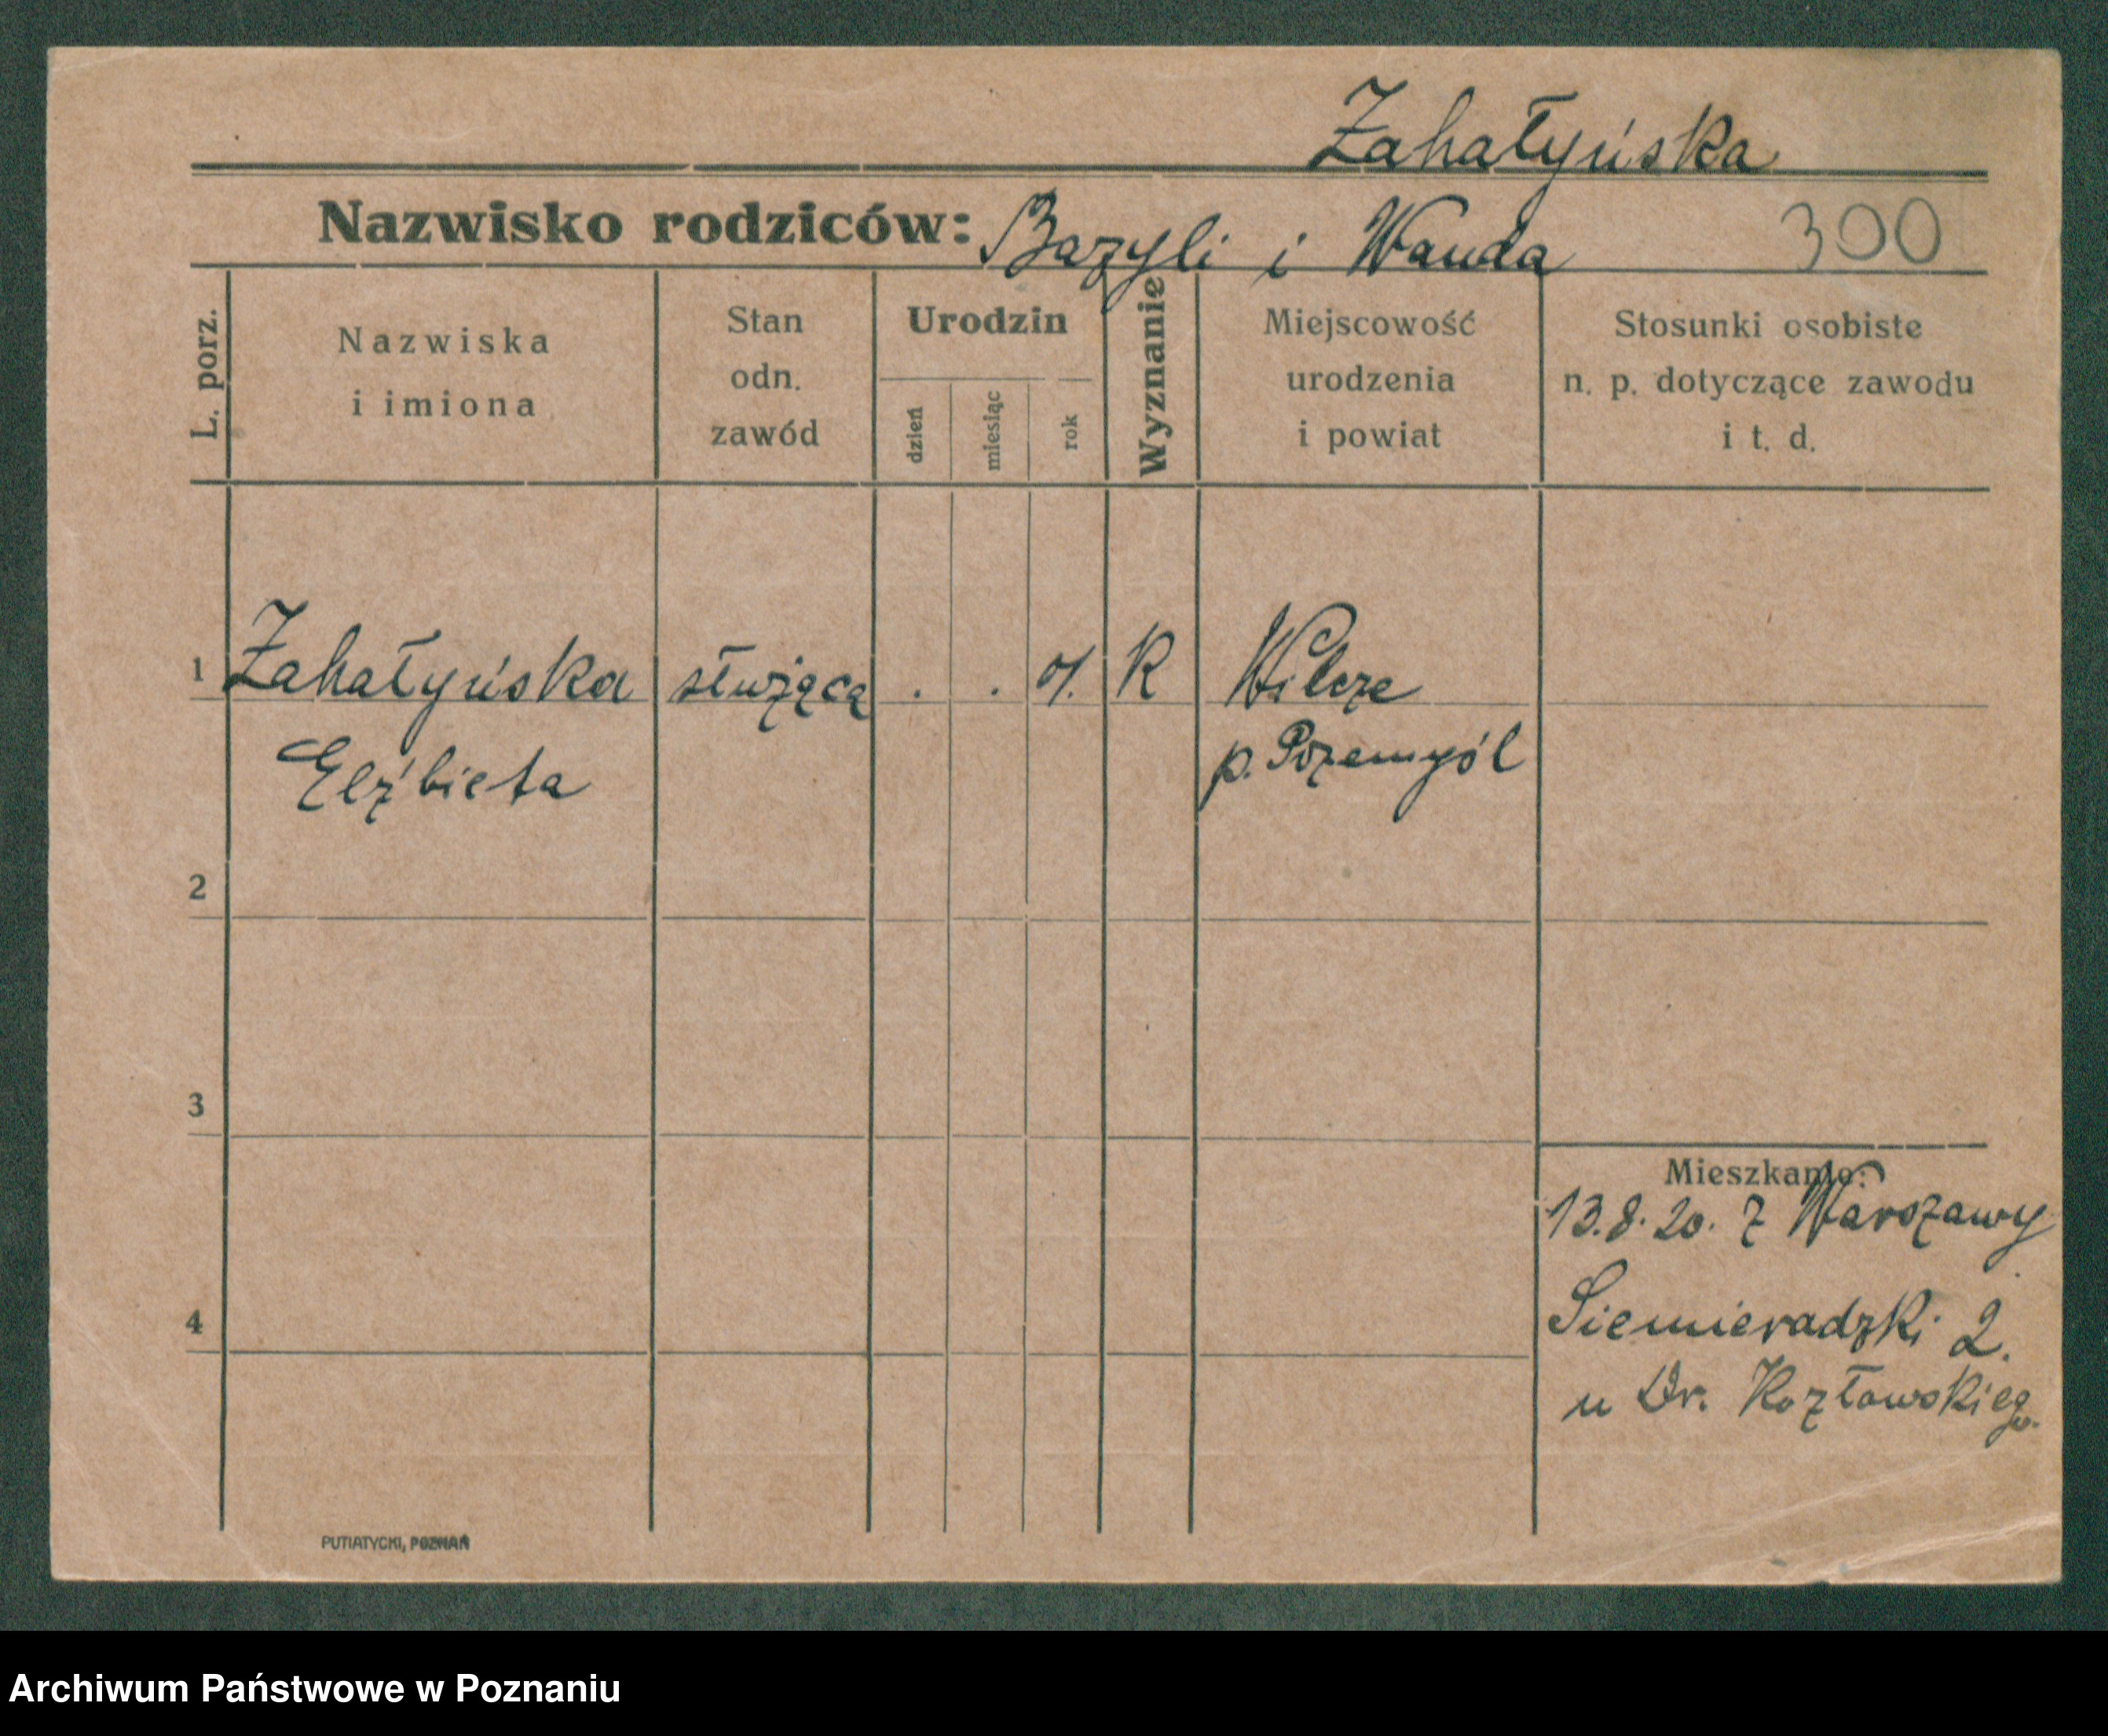 Zahałyńska
Nazwisko rodziców: Bazyli i Wanda 300
L. porz.
Nazwiska
i imiona
Stan
odn.
zawód
Urodzin
dzień
miesiąc
rok
Wyznanie
Miejscowość
urodzenia
i powiat
Stosunki osobiste
n. p. dotyczące zawodu
i t. d.
1 Zahałyńska służącą . . 01. K Wilcze
Elżbieta p. Pozemyśl
2
3
Mieszkanie:
13.8.20. z Warszawy
4 Siemieradzki 2.
u Dr. Kozłowskiego.
PUTIATYCKI, POZNAŃ
Archiwum Państwowe w Poznaniu